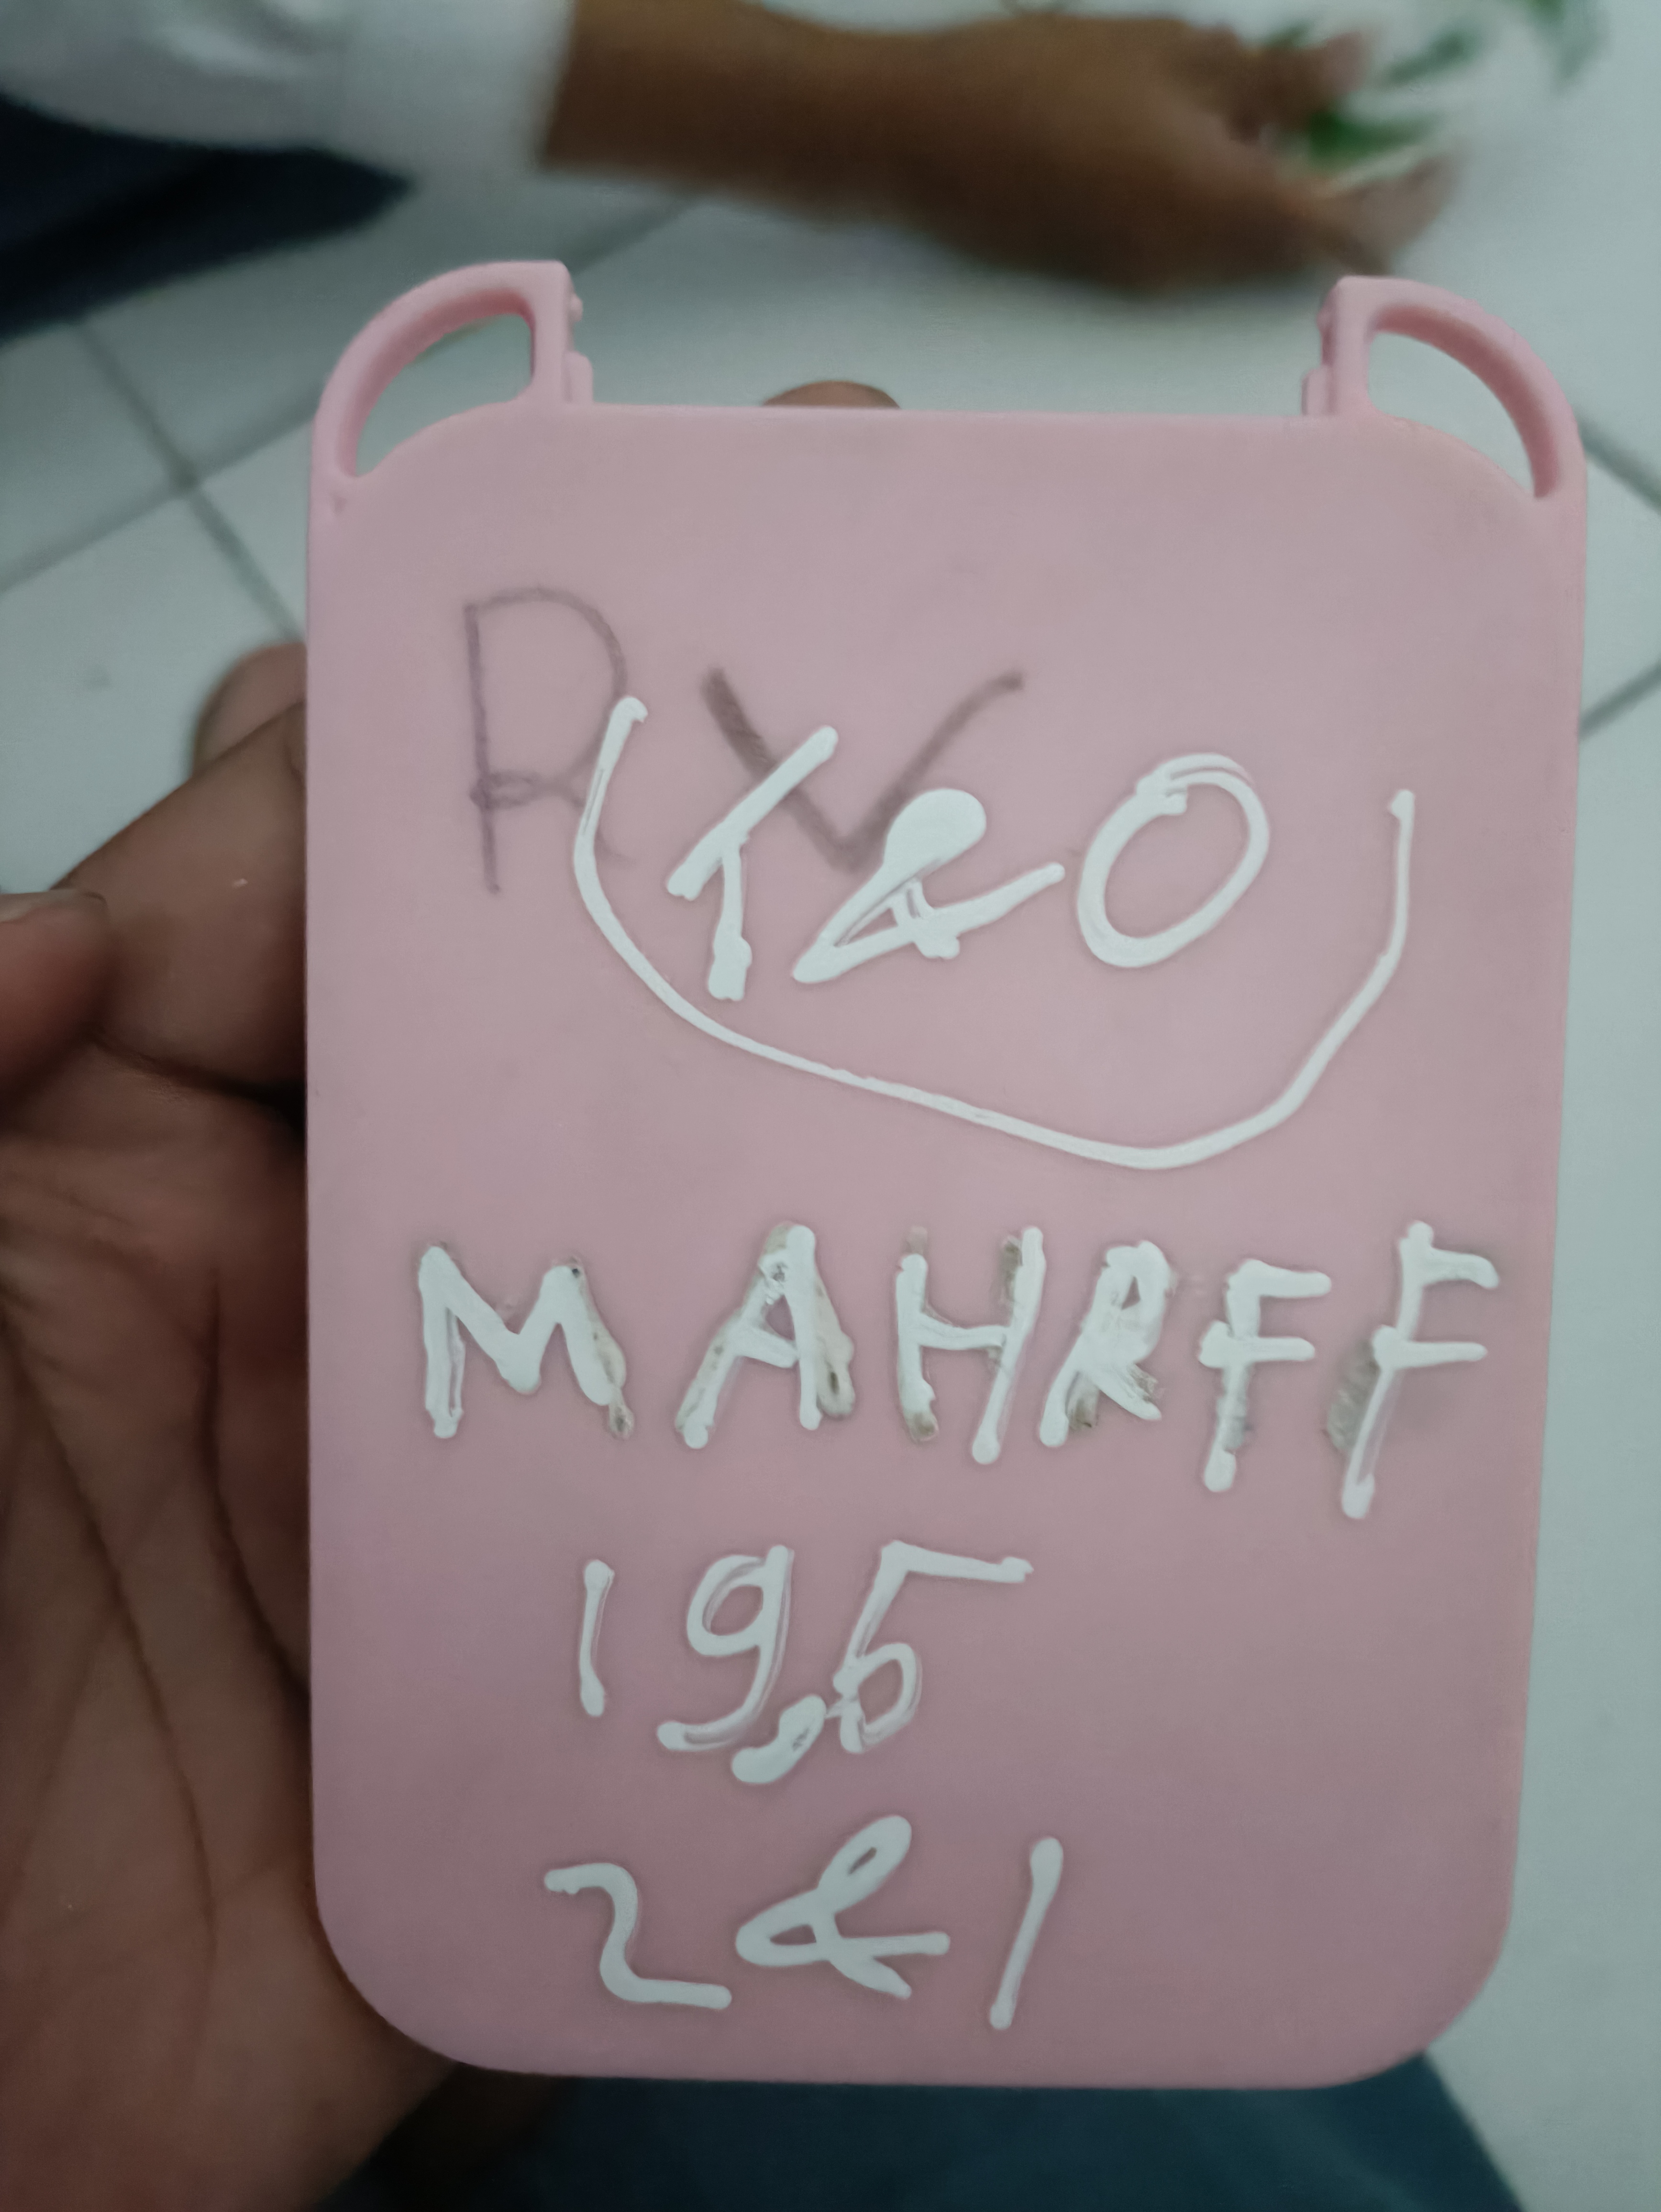 RV
T&O
MAHRFF
19,5
2&1